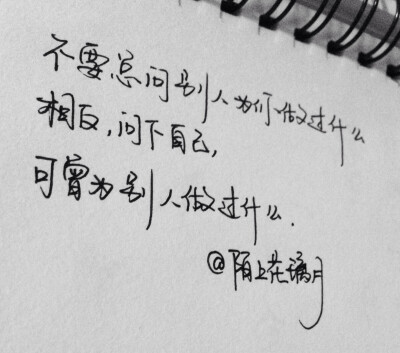 不要总问别人为你做过什么
相反,问下自己,
可曾为别人做过什么.
@陌上花满月